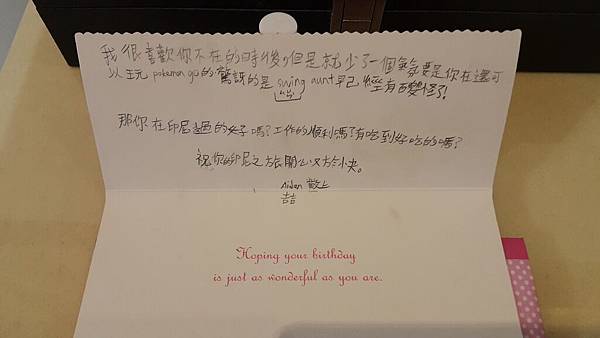 我很喜歡你不在的時後，但是就少了一個氣氛要是你在還可
以玩 pokemon go的驚訝的是 swing aunt早已經有百變怪了!
那你在印尼過的好嗎?工作的順利嗎?有吃到好吃的嗎?
祝你的印尼之旅開心又愉快。
Aiden 敬上
喆
Hoping your birthday
is just as wonderful as you are.